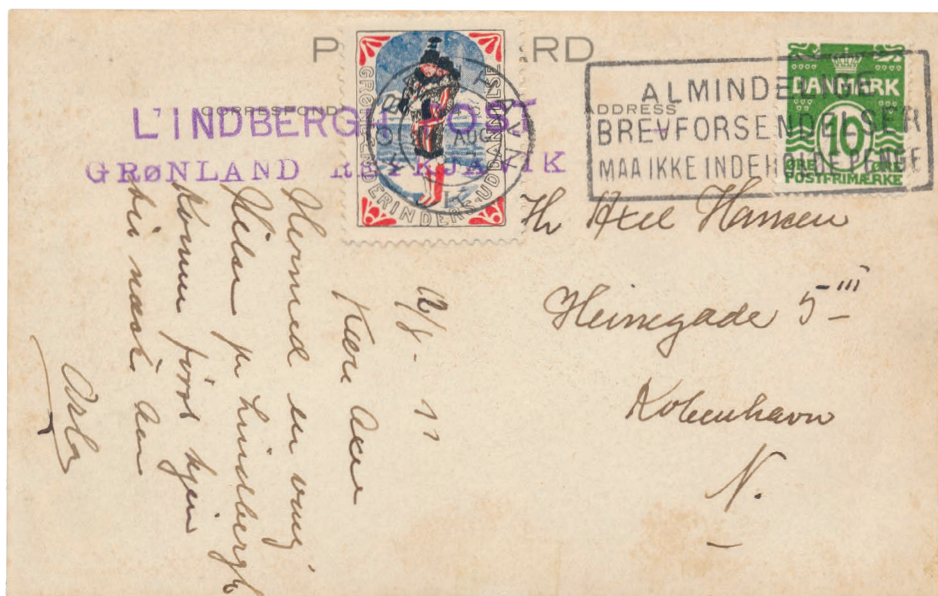 P RD
CORRESPOND
ADDRESS
L'INDBERGH POST
GRØNLAND REYKJAVIK
GRØN ERINDERS·UDDANNELSE
AUG
ALMINDELIGE
BREVFORSENDELSER
MAA IKKE INDEHOLDE PENGE
DANMARK
10
ØRE ØRE
POSTFRIMÆRKE
Hr Axel Hansen
Heinegade 5 III
København
N.
Kære
Hermed en
Hilsen pr Lindbergh
Kommer først hjem
til næste